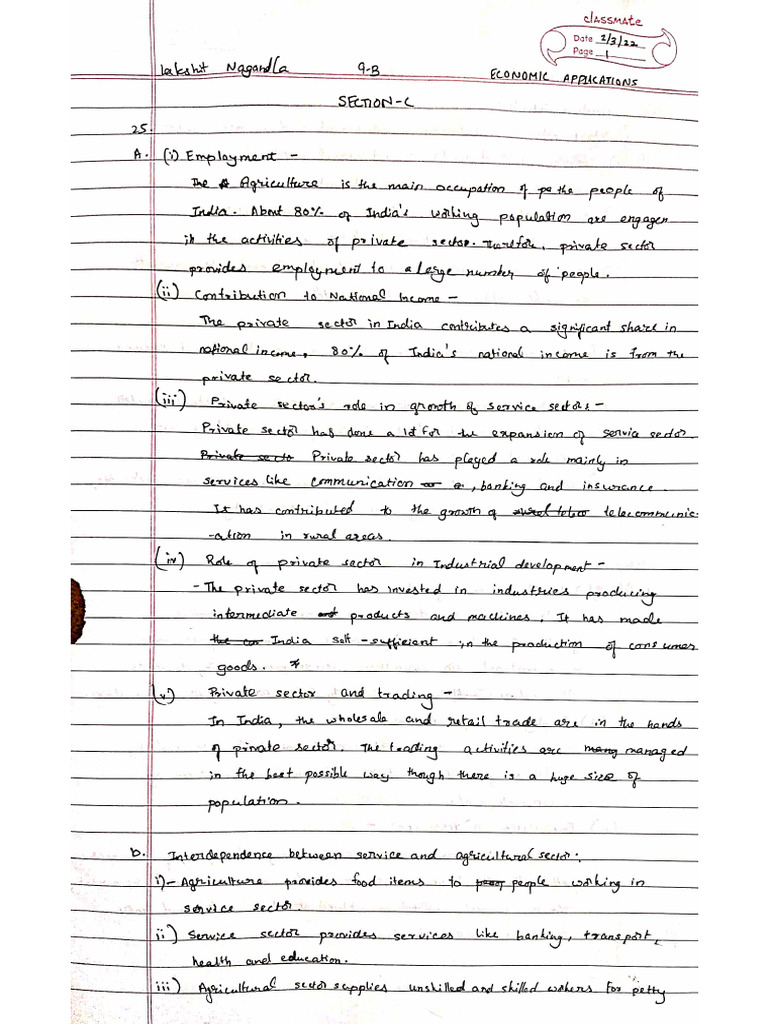 classmate
Date 2/3/22
Page 1
Lakshit Nagandla 9-B ECONOMIC APPLICATIONS
SECTION-C
25.
A. (i) Employment -
The Agriculture is the main occupation of the people of
India. About 80% of India's working population are engagen
in the activities of private sector. Therefore, private sector
provides employment to a large number of people.
(ii) Contribution to National Income -
The private sector in India contributes a significant share in
national income, 80% of India's national income is from the
private sector.
(iii) Private sector's role in growth of service sectors -
Private sector has done a lot for the expansion of service sector.
Private secto Private sector has played a role mainly in
services like communication , banking and insurance.
It has contributed to the growth of telecommunic-
-ation in rural areas.
(iv) Role of private sector in Industrial development -
- The private sector has invested in industries producing
intermediate products and machines. It has made
India self-sufficient in the production of consumer
goods.
(v) Private sector and trading -
In India, the wholesale and retail trade are in the hands
of private sector. The trading activities are managed
in the best possible way though there is a huge size of
population.
b. Interdependence between service and agricultural sector:
i) - Agriculture provides food items to people working in
service sector.
ii) Service sector provides services like banking, transport,
health and education.
iii) Agricultural sector supplies unskilled and skilled workers for petty